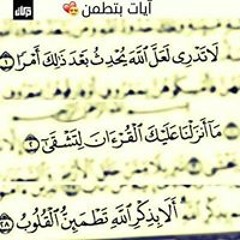 آيات بتطمن
لَا تَدْرِى لَعَلَّ ٱللَّهَ يُحْدِثُ بَعْدَ ذَٰلِكَ أَمْرًا ١
مَآ أَنزَلْنَا عَلَيْكَ ٱلْقُرْءَانَ لِتَشْقَىٰٓ ٢
أَلَا بِذِكْرِ ٱللَّهِ تَطْمَئِنُّ ٱلْقُلُوبُ ٢٨